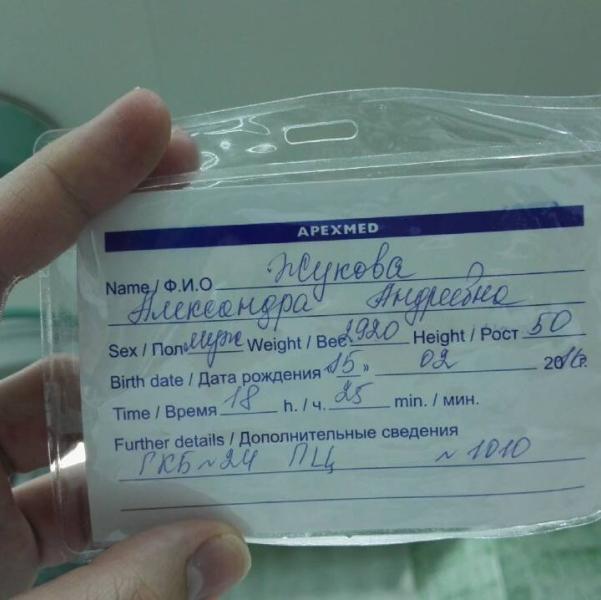 APEXMED
Name / Ф.И.О Жукова
Александра Андреевна
Sex / Пол муж Weight / Вес 2920 Height / Рост 50
Birth date / Дата рождения «15» 02 2016г.
Time / Время 18 h. / ч. 25 min. / мин.
Further details / Дополнительные сведения
ГКБ №24 ПЦ №1010